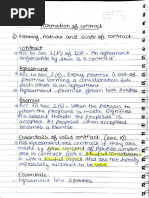 Formation of contract
i) Meaning, nature and scope of contract
contract
Acc to sec 2(h) of ICA - An agreement
enforceable by law is a contract
Agreement
Acc to sec 2(e) - Every promise & set of
promise forming a consideration for
each other is called an agreement.
Promise
Acc to sec 2(b) - When the person to
whom the proposal is made,
signifies his assent there to, the
proposal is said to be accepted. A
proposal when accepted becomes
a promise
Essentials of valid contract (sec 10)
All agreements are contract if they are
made by free consent of parties
to a contract for a lawful consideration
with a lawful object and are not hereby
expressly declared to be void
Essentials
Agreement b/w 2 parties